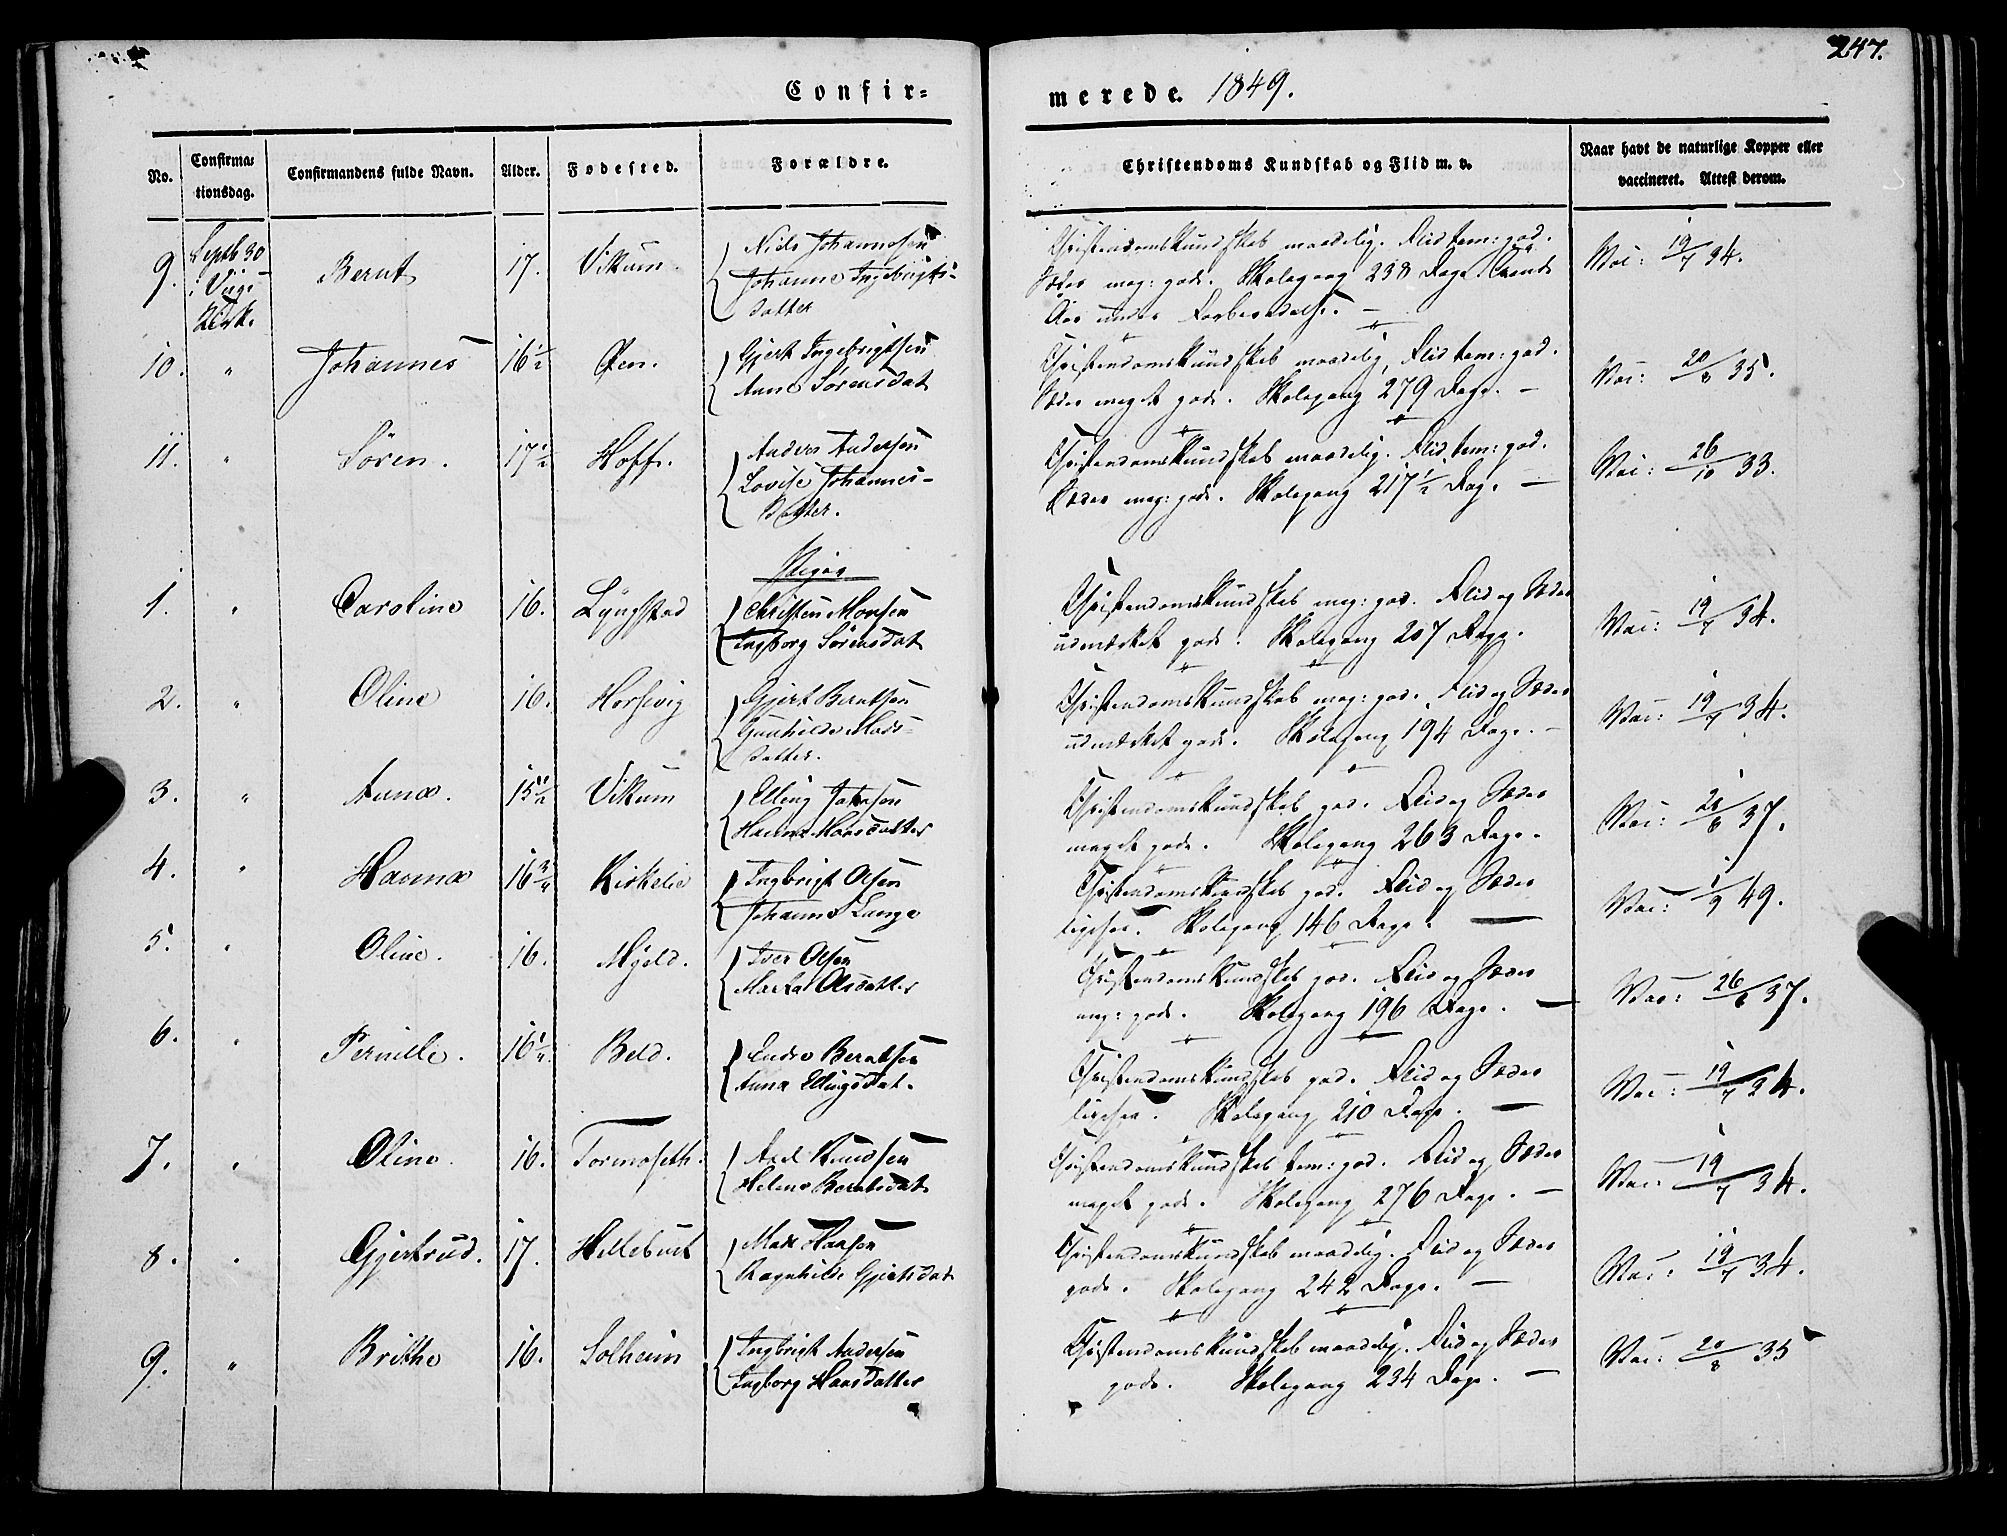 247.
Confir=
merede. 1849.
No.
Confirma=
tionsdag.
Confirmandens fulde Navn.
Alder.
Fødested.
Forældre.
Christendoms Kundskab og Flid m. v.
Naar havt de naturlige Kopper eller
vaccineret. Attest derom.
9. Septb 30 i Kirk. Bernt 17. Vikum. Niels Johannesen
Johanne Ingebrigts-
datter
Christendomskundskab maadelig. Flid tem: god.
Sæder meg: gode. Skolegang 238 Dage.
Aar under Forberedelse. –
Vac: 19/7 34.
10. " Johannes 16½ Øen. Gjert Ingebrigtsen
Anne Sørensdat
Christendomskundskab maadelig, Flid tem: god.
Sæder meget gode. Skolegang 279 Dage. –
Vac: 20/8 35.
11. " Sören. 17½ Hoff. Anders Andersen
Lovise Johannes-
datter.
Christendomskundskab maadelig. Flid tem: god.
Sæder meg: gode. Skolegang 217½ Dag. –
Vac: 26/10 33.
Piger
1. " Caroline 16. Lyngstad Christen Monsen
Ingborg Sørensdat
Christendomskundskab meg: god. Flid og Sæder
udmærket gode. Skolegang 207 Dage.
Vac: 19/7 34.
2. " Oline 16. Horsevig Gjert Berntsen
Gunhilde Mads-
datter.
Christendomskundskab meg: god. Flid og Sæder
udmærket gode. Skolegang 194 Dage. –
Vac: 19/7 34.
3. " Anna. 15½ Vikum Elling Johnsen
Hanna Hansdatter
Christendomskundskab god. Flid og Sæder
meget gode. Skolegang 263 Dage.
Vac: 37.
4. " Hanna 16¾ Kirkelie Ingbrigt Olsen
Johanna Lange
Christendomskundskab god. Flid og Sæder
ligesaa. Skolegang 146 Dage. –
Vac: 1/9 49.
5. " Oline. 16. Myeld. Iver Olsen
Marta Olsdatter
Christendomskundskab god. Flid og Sæder
meg: gode. Skolegang 196 Dage. –
Vac: 26/6 37.
6. " Pernille. Beld. Endre Berntsen
Anna Ellingsdat.
Christendomskundskab god. Flid og Sæder
ligesaa. Skolegang 210 Dage. –
Vac: 19/7 34.
7. " Oline 16. Tormoseth. Axel Knudsen
Helene Berntsdat
Christendomskundskab tem: god. Flid og Sæder
meget gode. Skolegang 276 Dage. –
Vac: 19/7 34.
8. " Gjertrud. 17. Hellebust Mads Hansen
Ragnhilde Gjertsdat
Christendomskundskab maadelig. Flid og Sæder
gode. Skolegang 242 Dage. –
Vac: 19/7 34.
9. " Brithe 16. Solheim Ingbrigt Andersen
Ingborg Hansdatter
Christendomskundskab maadelig. Flid og Sæder
gode. Skolegang 234 Dage. –
Vac: 20/8 35